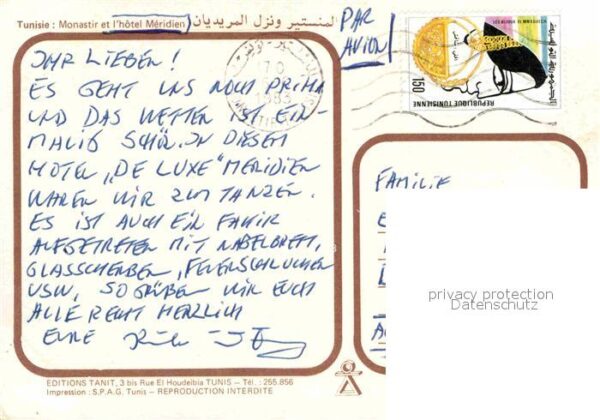 Tunisie : Monastir et l'hôtel Méridien المنستير ونزل المريديان
PAR
AVION
REPUBLIQUE TUNISIENNE
150
IHR LIEBEN!
ES GEHT UNS NOCH PRIMA
UND DAS WETTER IST EIN-
MALIG SCHÖN. IN DIESEM
HOTEL „DE LUXE" MERIDIEN
WAREN WIR ZUM TANZEN.
ES IST AUCH EIN FAKIR
AUFGETRETEN MIT NAGELBRETT,
GLASSCHERBEN, FEUERSCHLUCKEN
USW. SO GRÜßEN WIR EUCH
ALLE RECHT HERZLICH
EURE
FAMILIE
privacy protection
Datenschutz
EDITIONS TANIT, 3 bis Rue El Houdeibia TUNIS – Tél. : 255.856
Impression : S.P.A.G. Tunis – REPRODUCTION INTERDITE